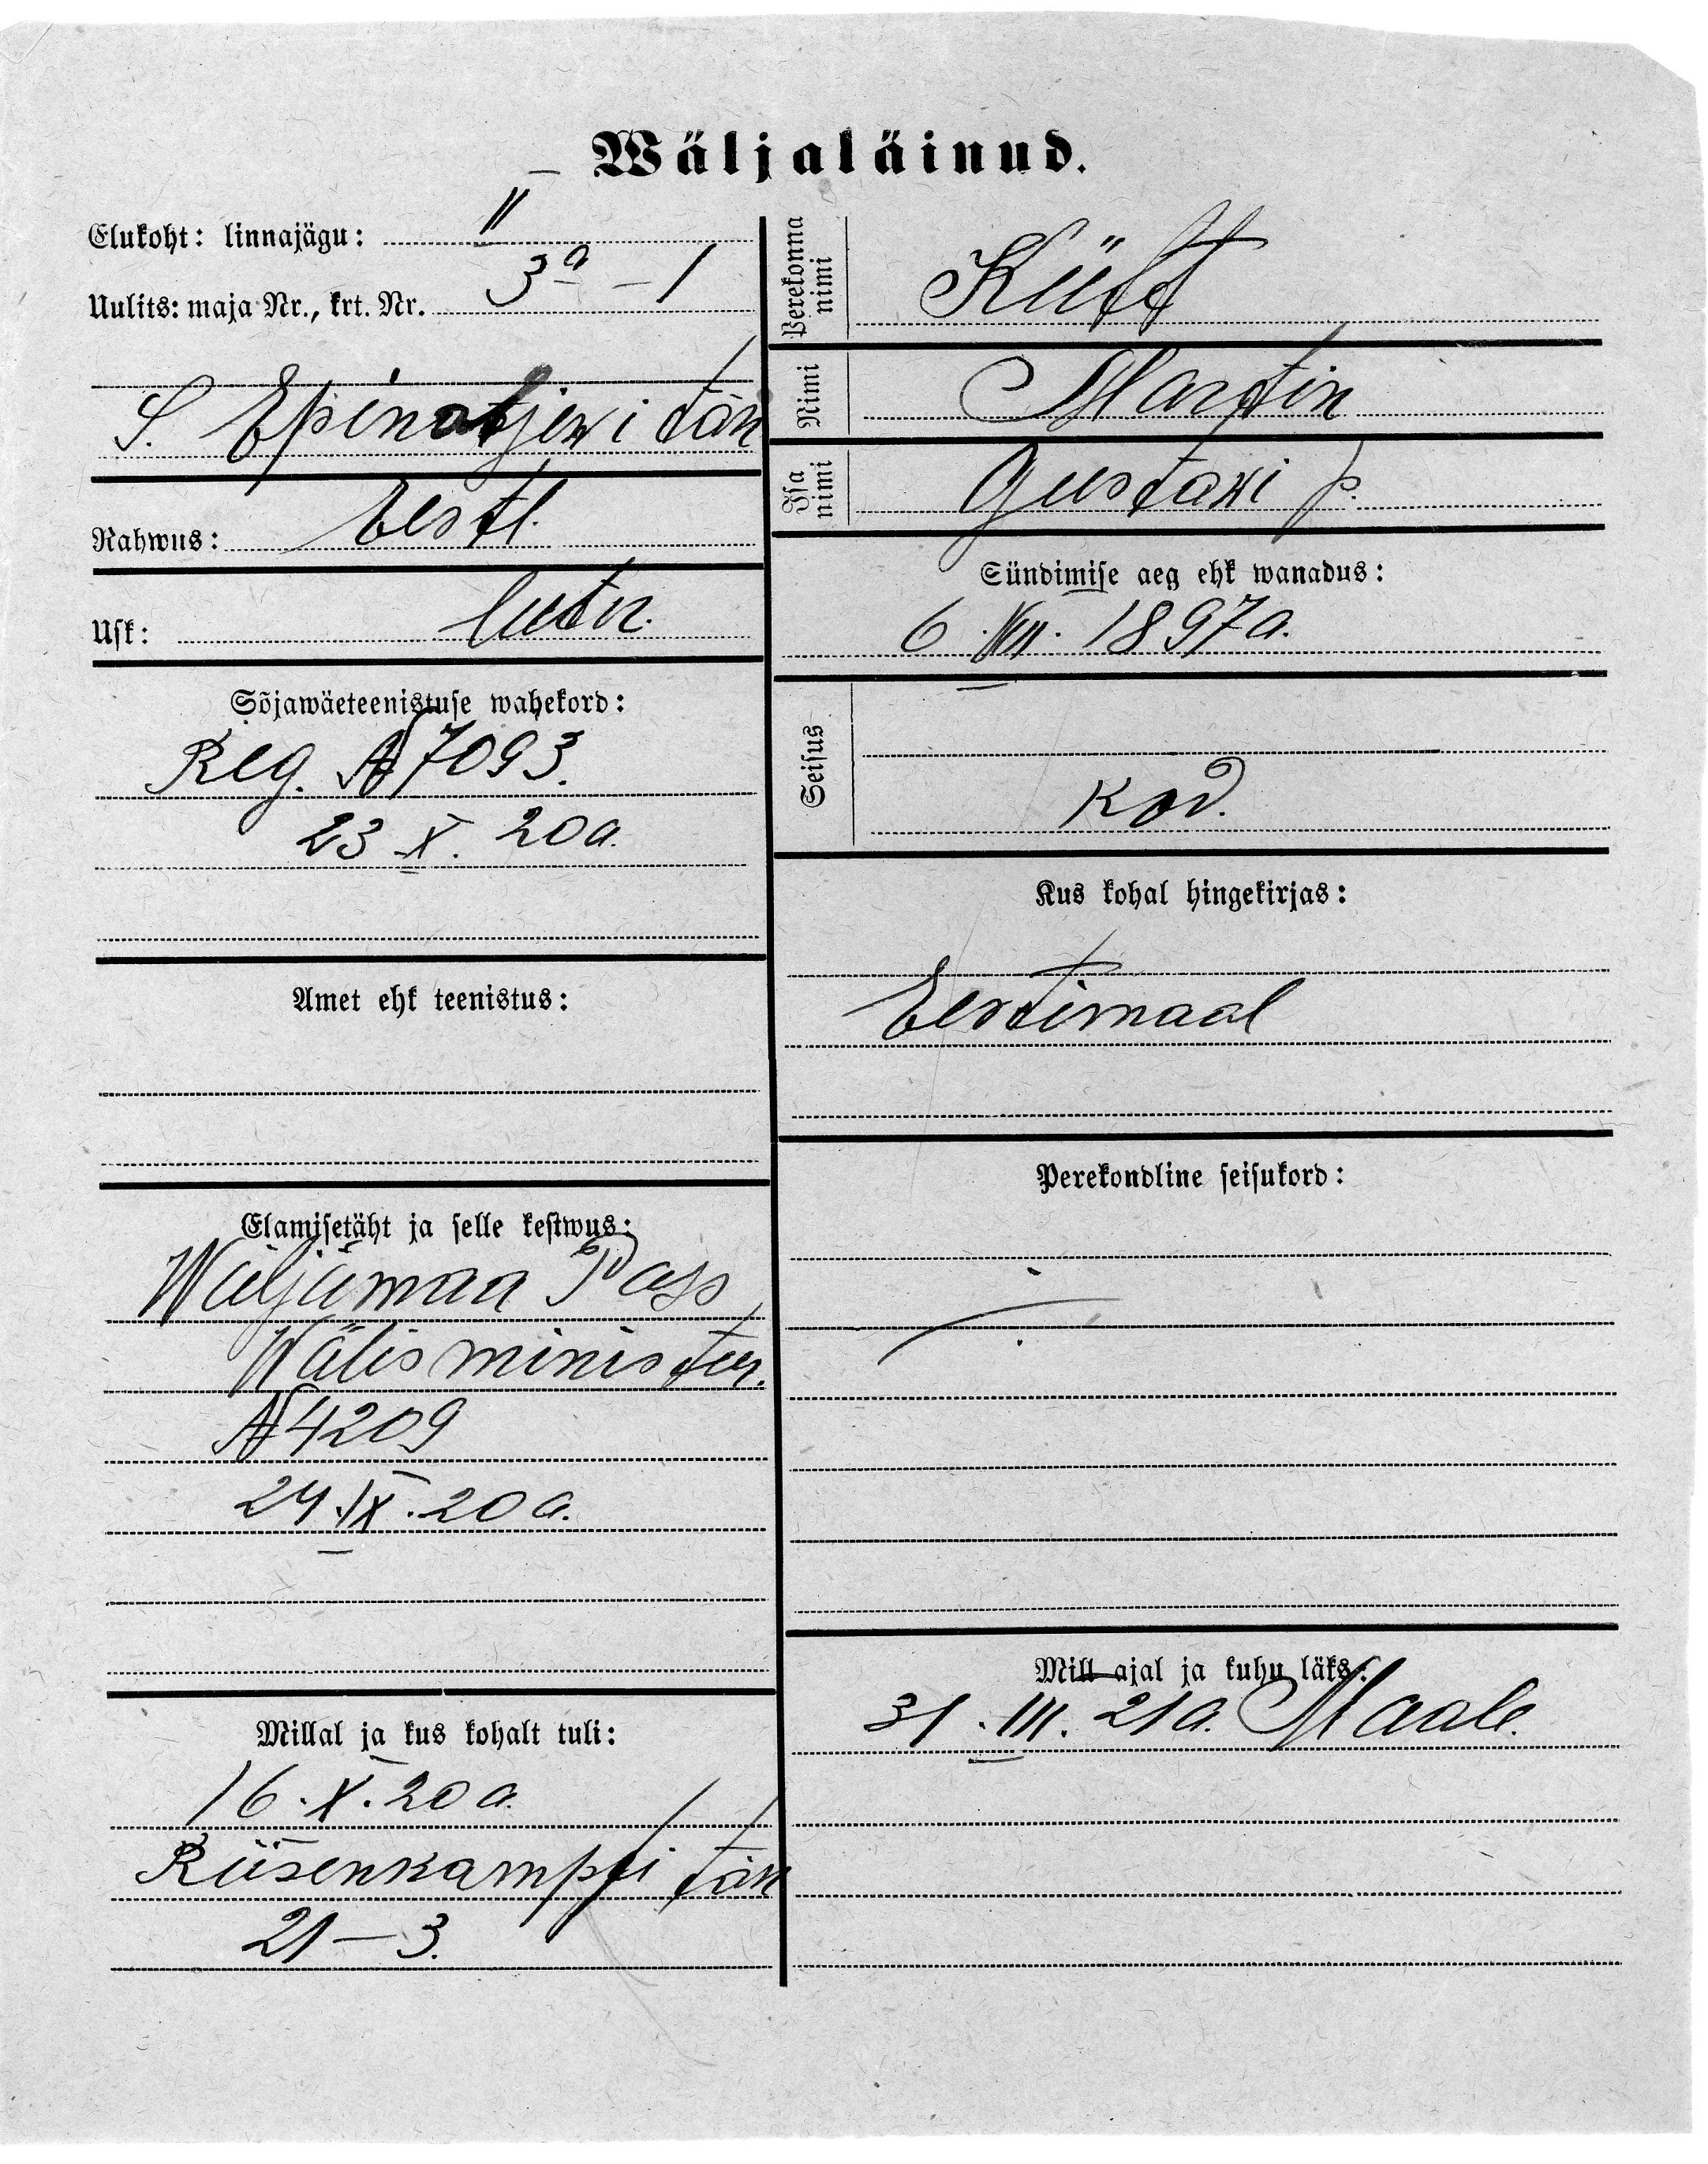 Wäljaläinud.
Elukoht: linnajägu: II
Uulits: maja Nr., krt. Nr. 3a – 1
S. Epinatjewi tän
Rahwus: Eestl.
Usk: lutr.
Sõjawäeteenistuse wahekord:
Reg. № 7093.
23 X. 20 a.
Amet ehk teenistus:
Elamisetäht ja selle kestwus:
Wäljamaa Pass
Wälisminister.
№ 4209
24. IX. 20 a.
Millal ja kus kohalt tuli:
16. X. 20 a.
Rüsenkampfi tän
21 – 3.
Perekonna nimi Kütt
Nimi Martin
Isa nimi Gustawi p.
Sündimise aeg ehk wanadus:
6. VII. 1897 a.
Seisus
kod.
Kus kohal hingekirjas:
Eestimaal
Perekondline seisukord:
Mill ajal ja kuhu läks:
31. III. 21 a. Maale.